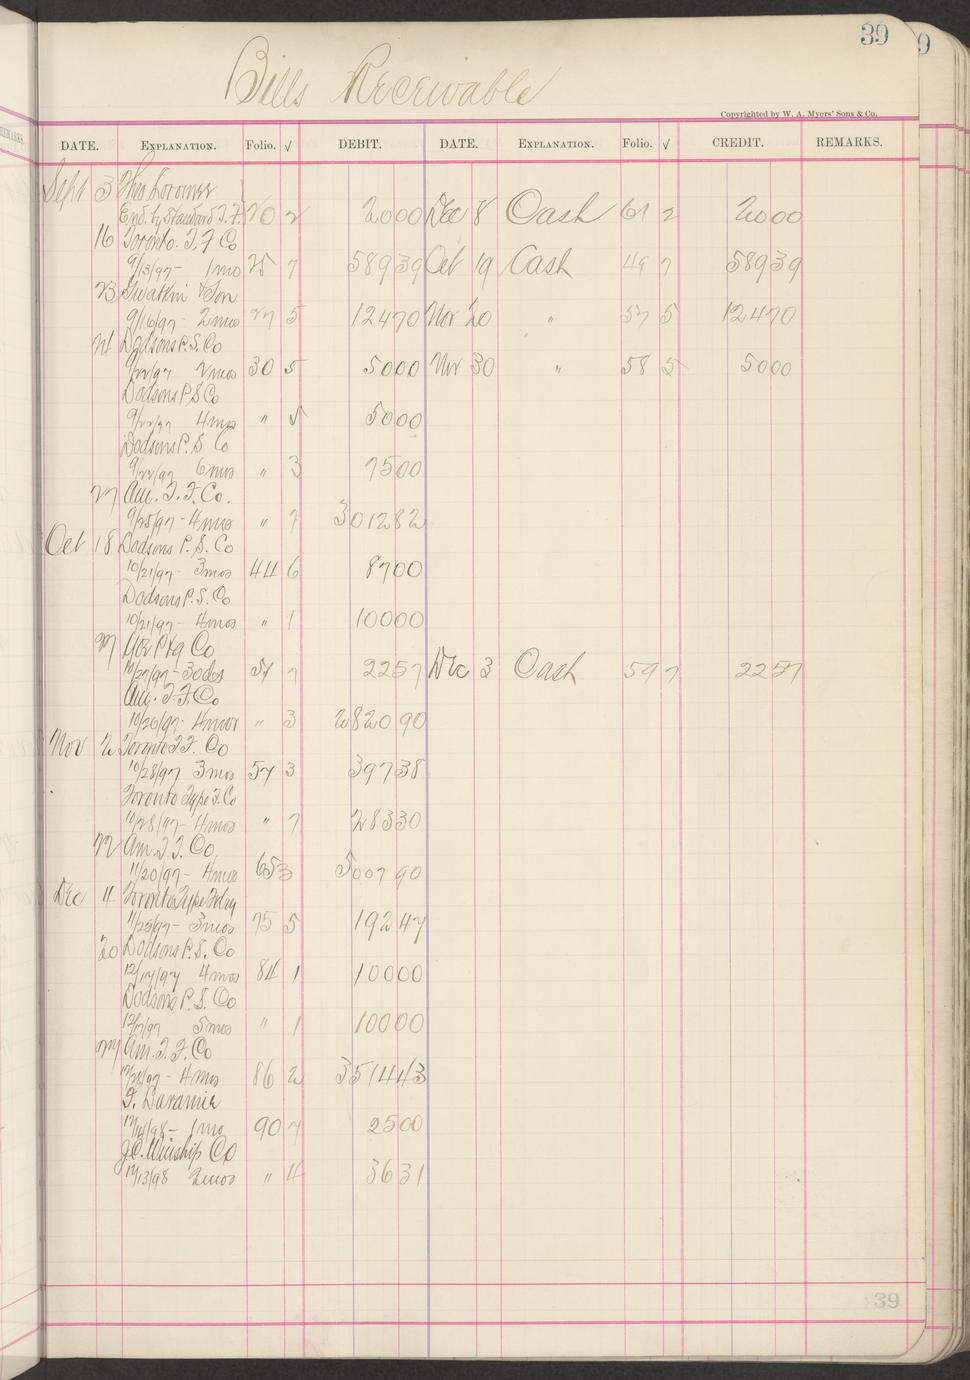 39
Bills Receivable
Copyrighted by W. A. Myers' Sons & Co.
DATE. EXPLANATION. Folio. √ DEBIT. DATE. EXPLANATION. Folio. √ CREDIT. REMARKS.
Sept 3 Theo Loromer
End. by Standard T. F. 20 2 2000 Dec 8 Cash 61 2 2000
16 Toronto. T. F Co
9/13/97- 1mo 25 7 58939 Oct 19 Cash 49 7 58939
23 Swatkin & Son
9/16/97- 2mos 27 5 12470 Nov 20 " 57 5 12470
24 Dodsons P. S. Co
9/22/97 2mos 30 5 5000 Nov 30 " 58 5 5000
Dodsons P S Co
9/22/97 4mos " 5 5000
Dodsons P. S Co
9/22/97 6mos " 3 7500
27 Am. T. F. Co.
9/25/97- 4mos " 7 301282
Oct 18 Dodsons P. S. Co
10/21/97- 3mos 44 6 8700
Dodsons P. S. Co
10/21/97- 4mos " 1 10000
27 Ptg Co
10/27/97- 30ds 51 7 2257 Dec 3 Cash 59 7 2257
Am. T. F. Co
10/26/97- 4mos " 3 282090
Nov 2 Toronto T F. Co
10/28/97 3mos 57 3 39738
Toronto Type F. Co
10/28/97- 4mos " 7 28330
22 Am. T. F. Co,
11/20/97- 4mos 65 3 500790
Dec 4 Toronto Type Fdry
11/25/97- 3mos 75 5 19247
20 Dodsons P. S. Co
12/17/97 4mos 84 1 10000
Dodsons P. S. Co
5mos " 1 10000
27 Am. T. F. Co
4mos 86 2 351443
F. Laramie
1mo 90 7 2500
J. C. Winship Co
12/13/98 2mos " 4 3631
39